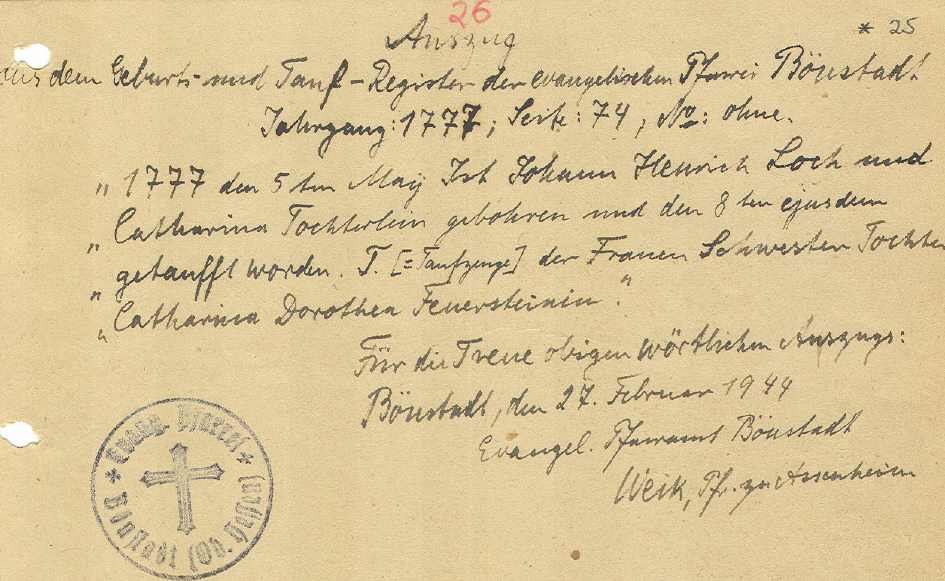 26
* 25
Auszug
aus dem Geburts- und Tauf-Register der evangelischen Pfarrei Bönstadt
Jahrgang: 1777; Seite: 74, No: ohne.
„ 1777 den 5ten May Ist Johann Henrich Loch und
„ Catharina Töchterlein gebohren und den 8ten ejusdem
„ getaufft worden. T. [=Taufzeuge] der Frauen Schwester Tochter
„ Catharina Dorothea Feuersteinin."
Für die Treue obigen wörtlichen Auszugs:
Bönstadt, den 27. Februar 1944
Evangel. Pfarramt Bönstadt
Weik, Pfr. zu Assenheim
Evang. Pfarrei
Bönstadt (Ob. Hessen)